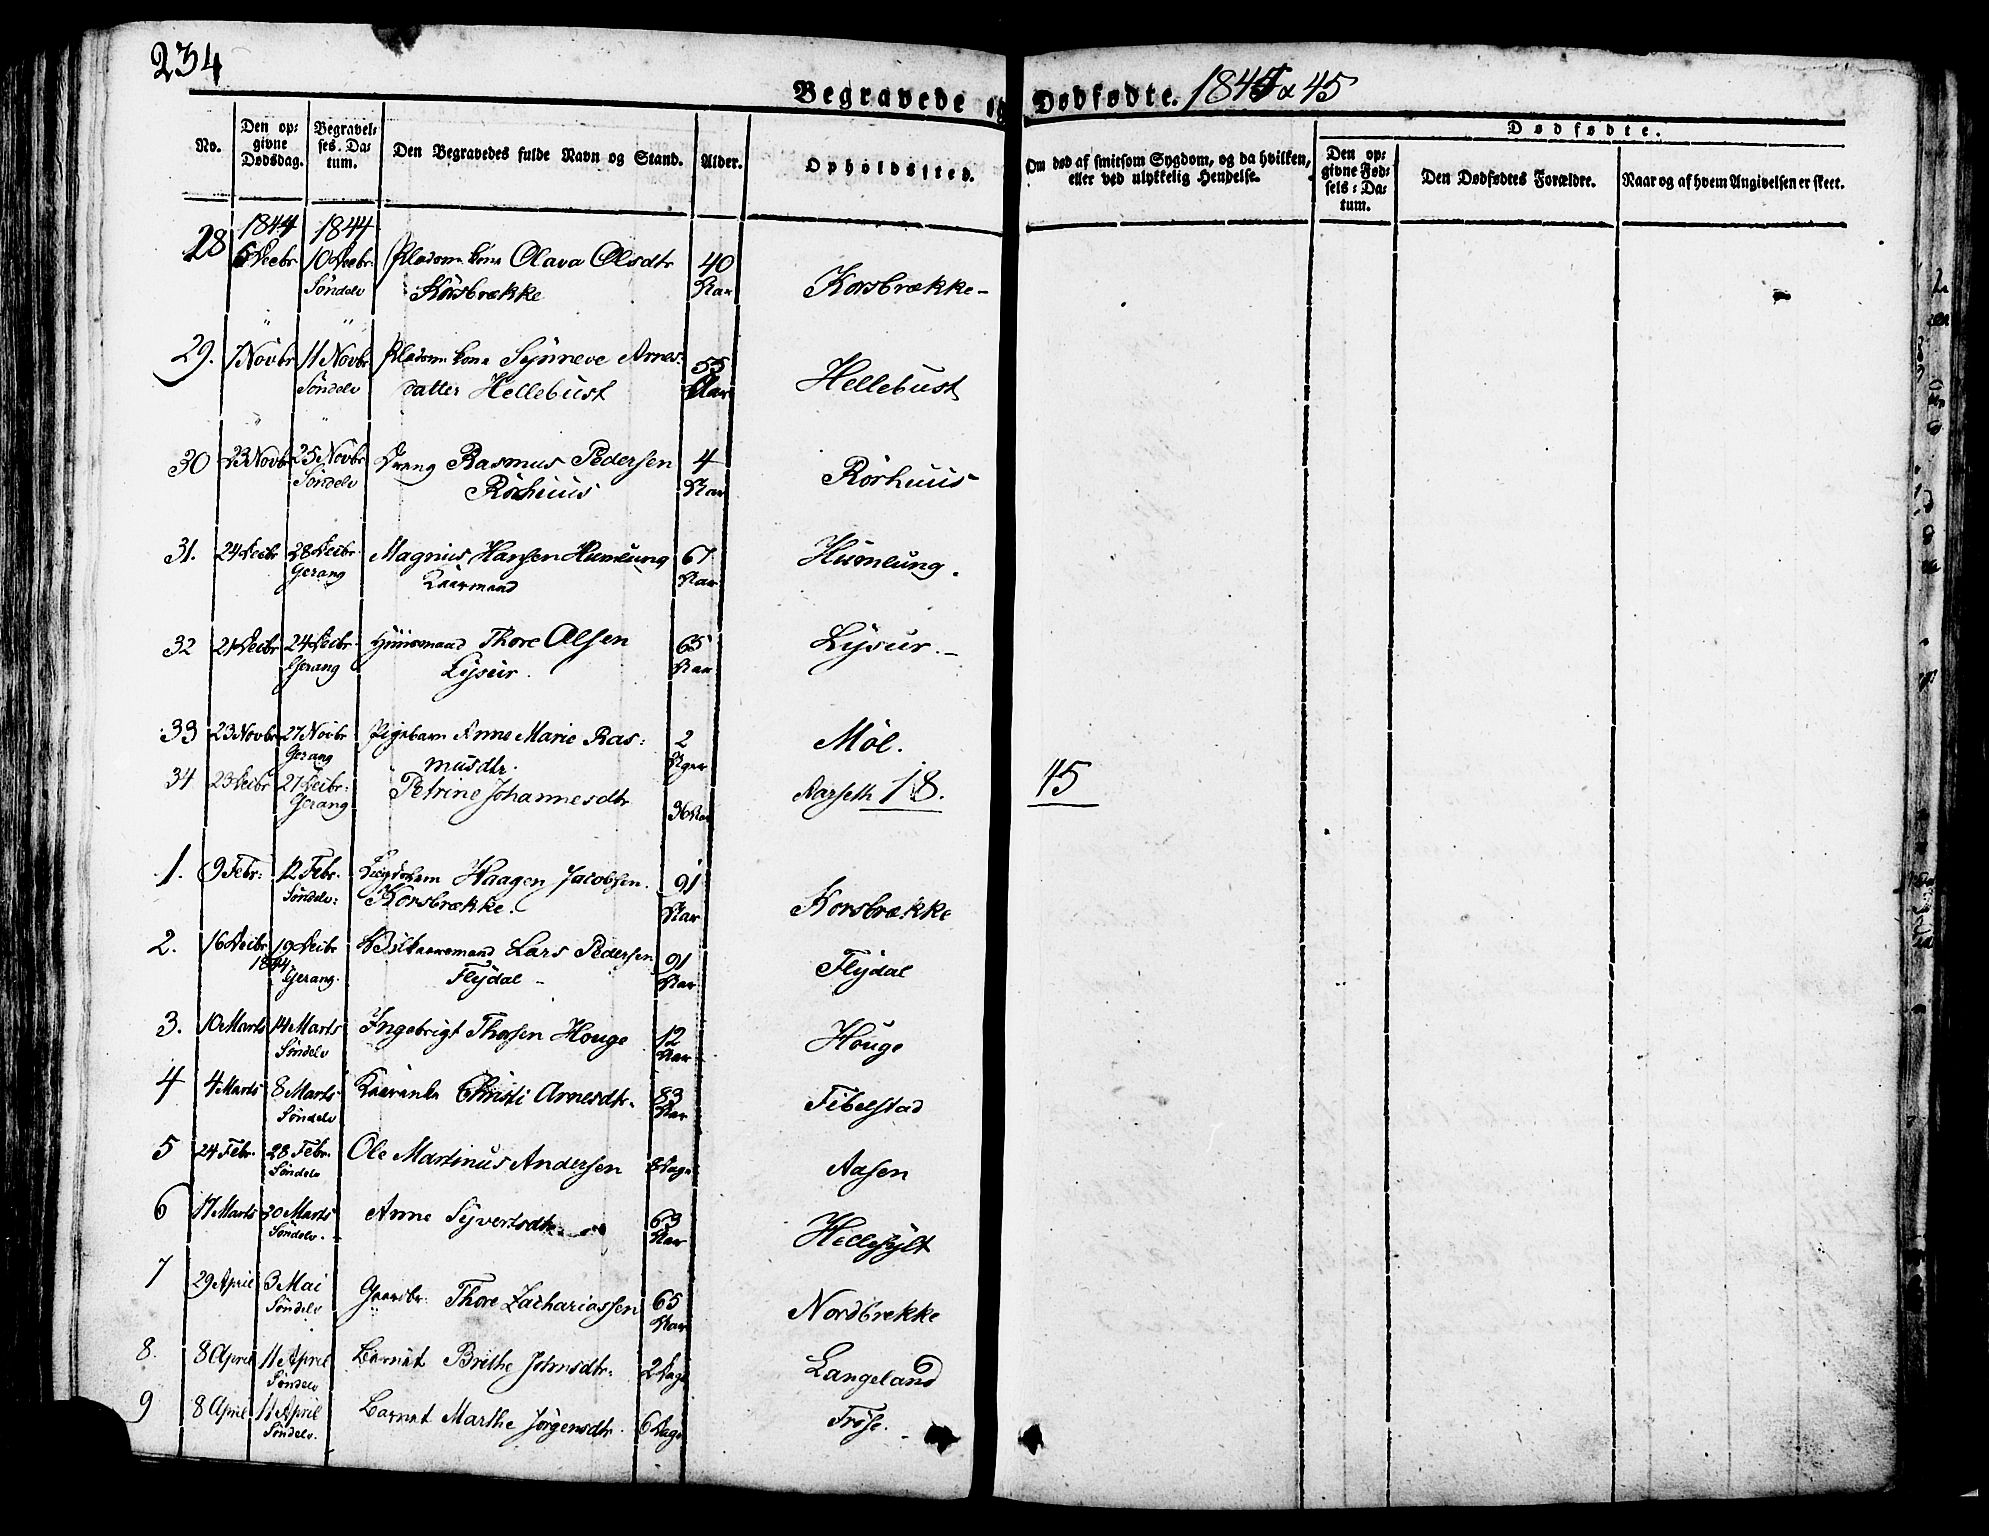 234
Begravede og Dødfødte. 1844 & 45
No.
Den op-
givne
Dødsdag.
Begravel-
ses-Da-
tum.
Den Begravedes fulde Navn og Stand.
Alder.
Opholdssted.
Om død af smitsom Sygdom, og da hvilken,
eller ved ulykkelig Hendelse.
Dødfødte.
Den op-
givne Fød-
sels-Da-
tum.
Den Dødfødtes Forældre.
Naar og af hvem Angivelsen er skeet.
1844 1844
28 Olava Olsdtr 40
Søndelv Korsbrække Aar Korsbrække
29. 7 Novbr 11 Novbr Kone Synneve Arnes- 55
Søndelv datter Hellebust Aar Hellebust
30 23 Novbr 25 Novbr Dreng Rasmus Pedersen 4
Søndelv Rørhuus Aar Rørhuus
31. 24 Decbr 28 Decbr Magnus Hansen Humlung 67 Humlung.
Gerang Kaarmand Aar
32 21 Decbr 24 Decbr Huusmand Thore Olsen 65 Lysur.
Gerang Lysur. Aar
33 23 Novbr 27 Novbr Pigebarn Anne Marie Ras- 2 Møl.
Gerang musdtr. Uger
34 23 Decbr 27 Decbr Petrine Johannesdtr 36 Aar Aarseth 18. 45
Gerang
1. 9 Febr: 12 Febr. Haagen Jacobsen. 91
Søndelv: Korsbrække. Aar Korsbrække
2. 16 Decbr 19 Decbr Lars Pedersen 91
1844 Gerang. Flydal Aar Flydal
3. 10 Marts 14 Marts Ingebrigt Thorsen Houge 12 Houge
Søndelv Aar
4 4 Marts 8 Marts Kaarenke Christi Arnesdtr. 83 Fibelstad
Søndelv Aar
5 24 Febr. 28 Febr. Ole Martinus Andersen 8 Dage Aasen
Søndelv
6 17 Marts 20 Marts Anne Syvertsdtr. 63
Søndelv. Aar Hellesylt
7 29 April 3 Mai Gaardbr: Thore Zachariassen 65
Søndelv Aar Nordbrekke
8. 8 April 11 April Barnet Brithe Johnsdtr. 2 Dage Langeland
Søndelv
9 8 April 11 April Barnet Marthe Jørgensdtr. 6 Dage Frøse.
Søndelv.